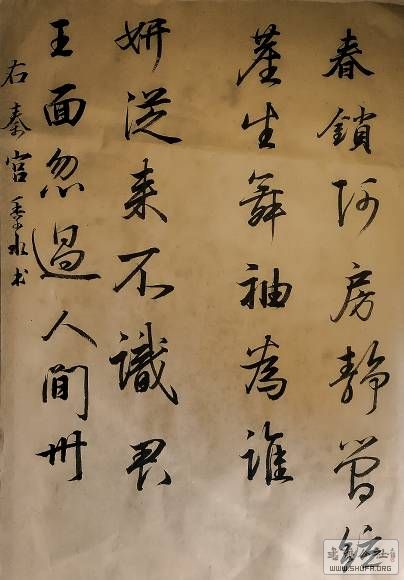 春鎖阿房靜管絃
塵生舞袖為誰
妍從来不識君
王面忽過人間卅
右秦宮 水书
WWW.SHUFA.ORG